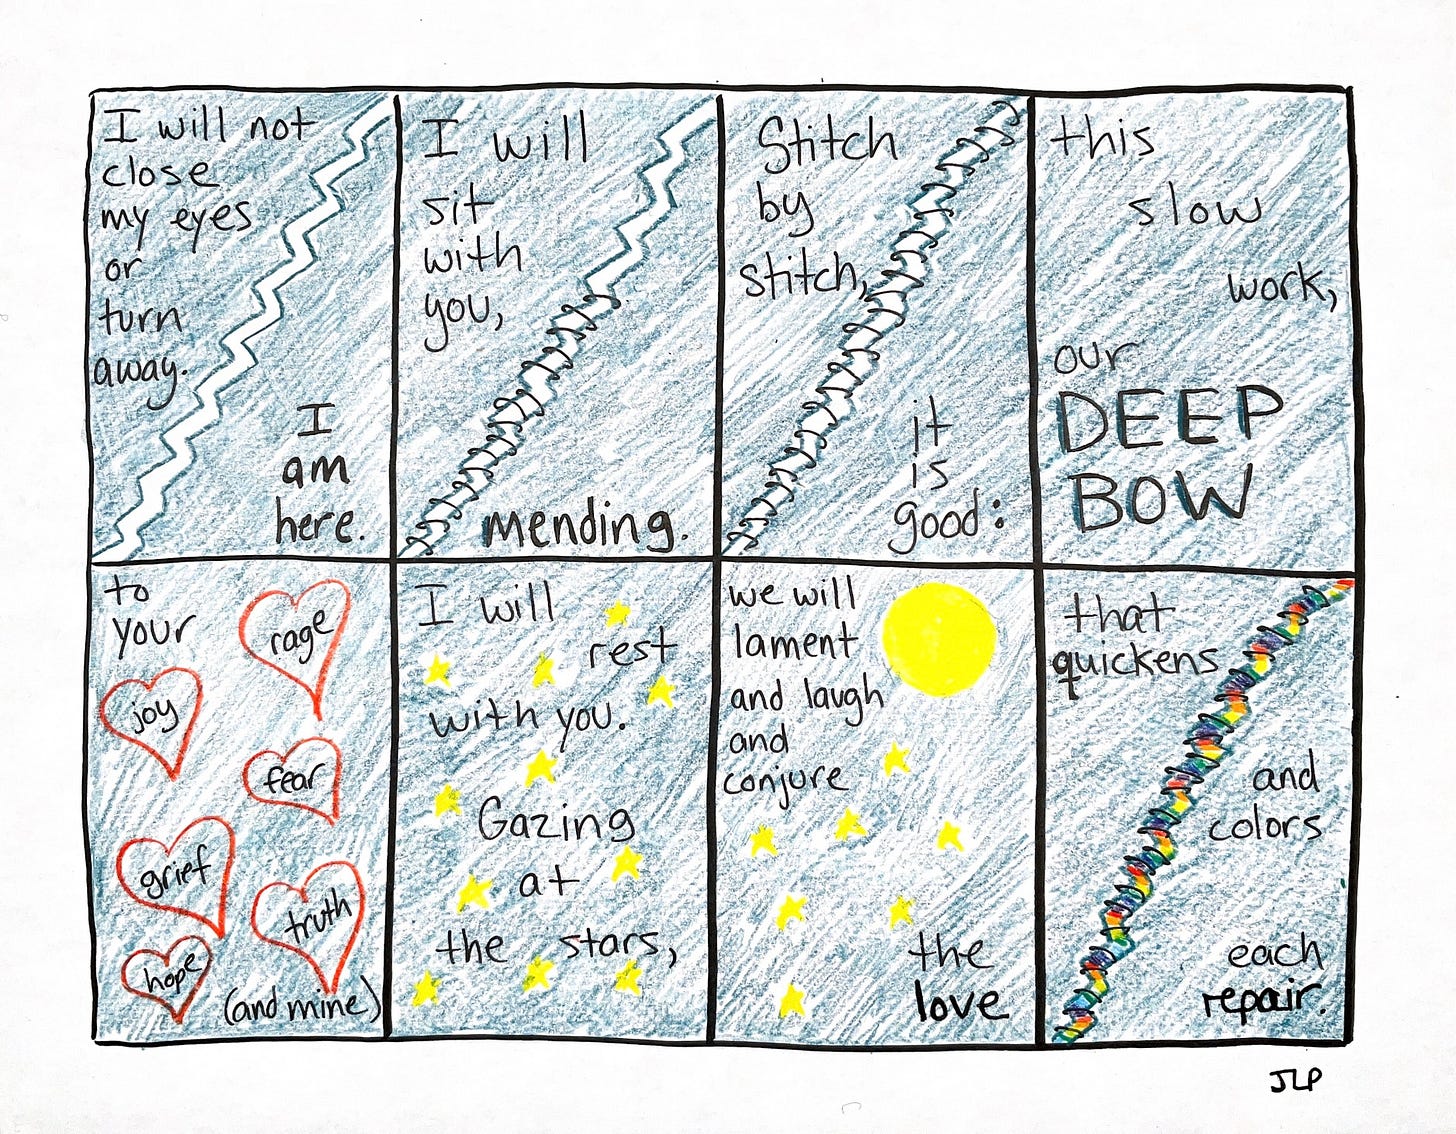 I will not
close
my eyes
or
turn
away.
I
am
here.
I will
sit
with
you,
mending.
Stitch
by
stitch,
it
is
good:
this
slow
work,
our
DEEP
BOW
to
your
rage
joy
fear
grief
truth
hope
(and mine)
I will
rest
with you.
Gazing
at
the stars,
we will
lament
and laugh
and
conjure
the
love
that
quickens
and
colors
each
repair.
JLP